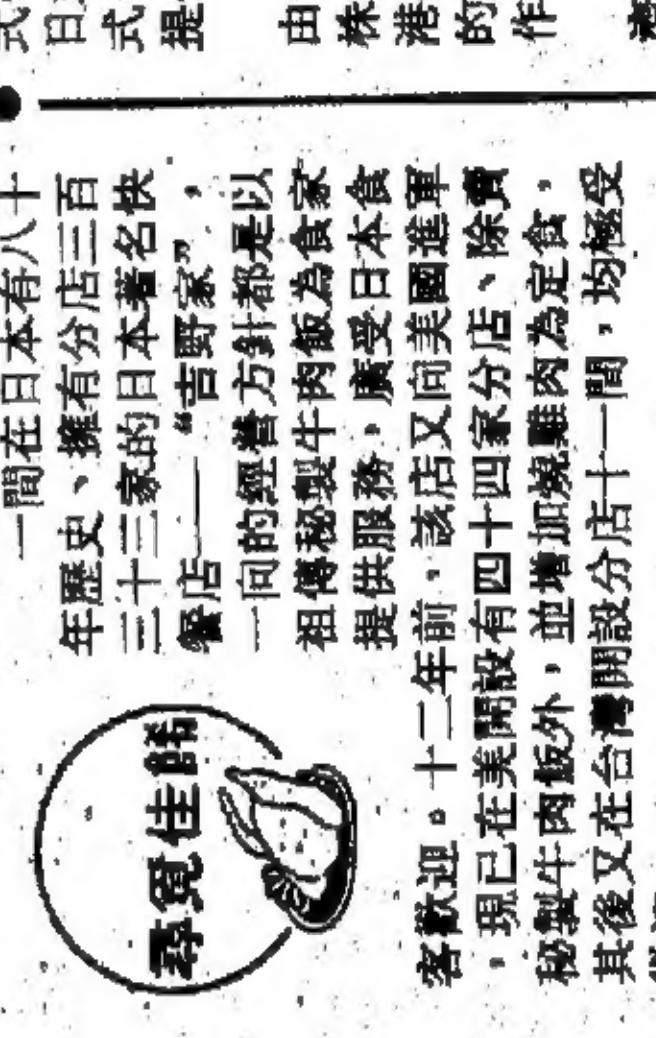 尋覓佳餚
一間在日本有八十
年歷史、擁有分店三百
三十三家的日本著名快
餐店——“吉野家”,
一向的經營方針都是以
祖傳秘製牛肉飯為食家
提供服務,廣受日本食
客歡迎。十二年前,該店又向美國進軍
,現已在美開設有四十四家分店、除賣
秘製牛肉飯外,並增加燒雞肉為定食。
其後又在台灣開設分店十一間,均極受
式
日
式
提
由
株
港
的
作